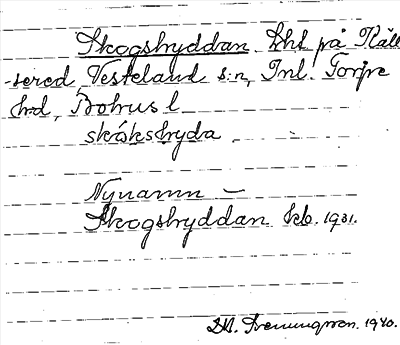 Skogshyddan. Lht på Käll
-sered, Vesteland s:n, Inl. Torpe
hd, Bohus l.
skókshyda
Nynamn –
Skogshyddan kb. 1931.
1940.